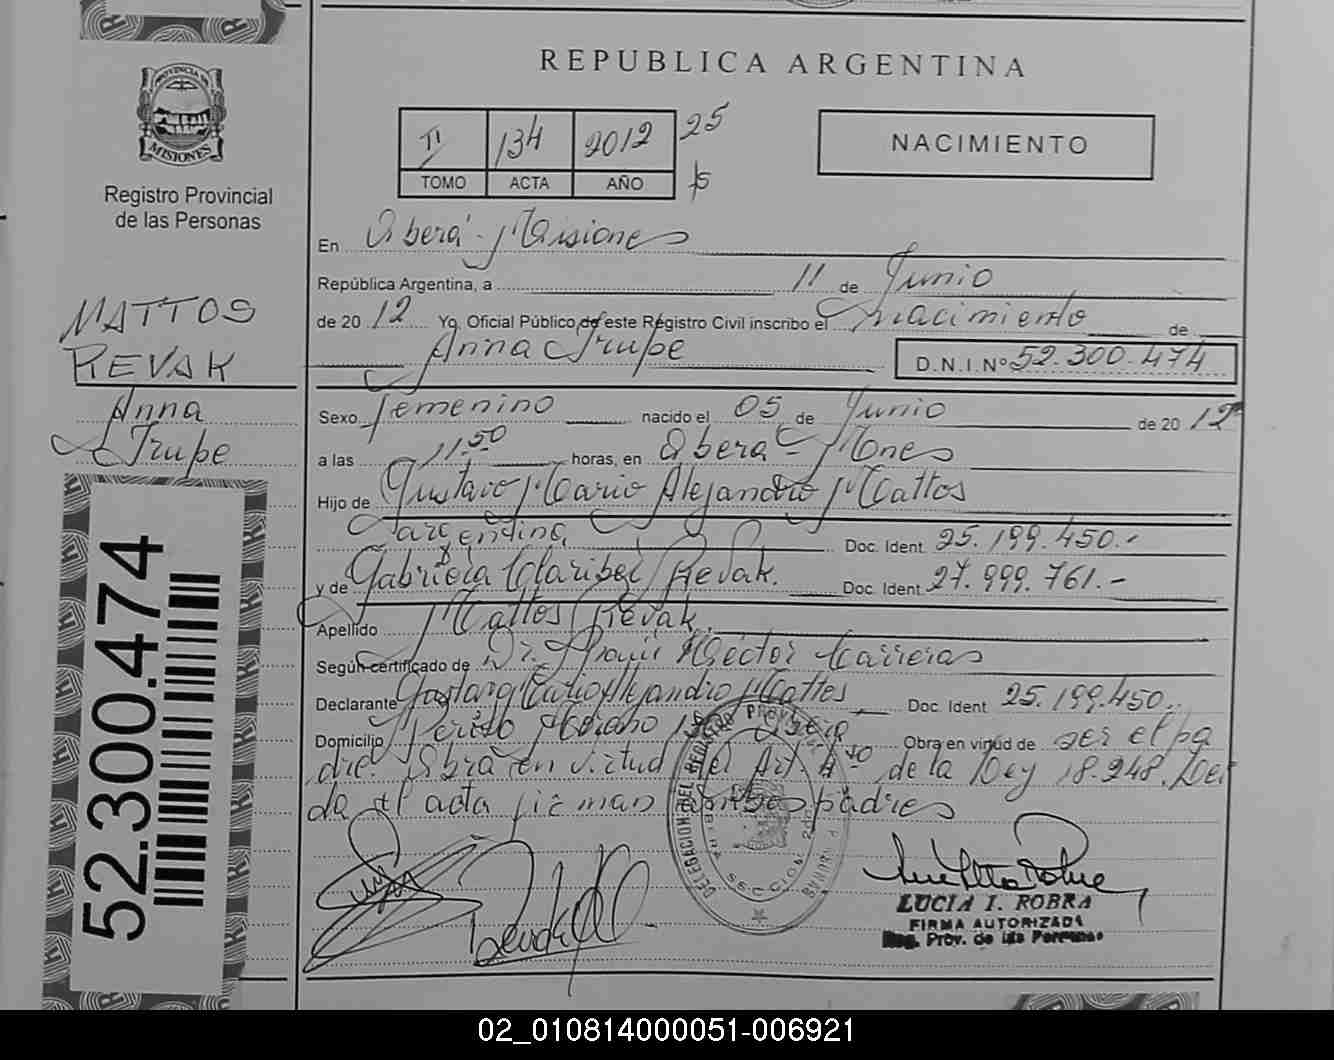 REPUBLICA ARGENTINA
PROVINCIA DE
MISIONES
Registro Provincial
de las Personas
II 134 2012 25
TOMO ACTA AÑO
NACIMIENTO
En Oberá - Misiones
República Argentina, a 11 de Junio
de 2012 Yo, Oficial Público de este Registro Civil inscribo el nacimiento de
Anna D.N.I.Nº 52.300.474
MATTOS
REVAK
Anna
Sexo femenino nacido el 05 de Junio de 2012
a las 11.50 horas, en Oberá - Mnes
Hijo de Gustavo Mario Alejandro Mattos
argentino Doc. Ident. 25.199.450.-
y de Gabriela Revak. Doc. Ident. 27.999.761.-
Apellido Mattos Revak.
Según certificado de Dr. Héctor Carreras
Declarante Gustavo Mario Alejandro Mattos Doc. Ident 25.199.450.
Domicilio Perito Moreno Oberá Obra en virtud de ser el pa
dre. Obra en virtud del Art. 4to de la Ley 18.248. Leí
da el acta firman ambos padres
DELEGACION DEL REGISTRO
LUCIA I. ROBRA
FIRMA AUTORIZADA
Reg. Prov. de las Personas
52.300.474
02_010814000051-006921